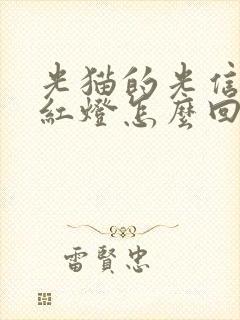 光猫的光信
紅燈怎麼回
雷賢忠